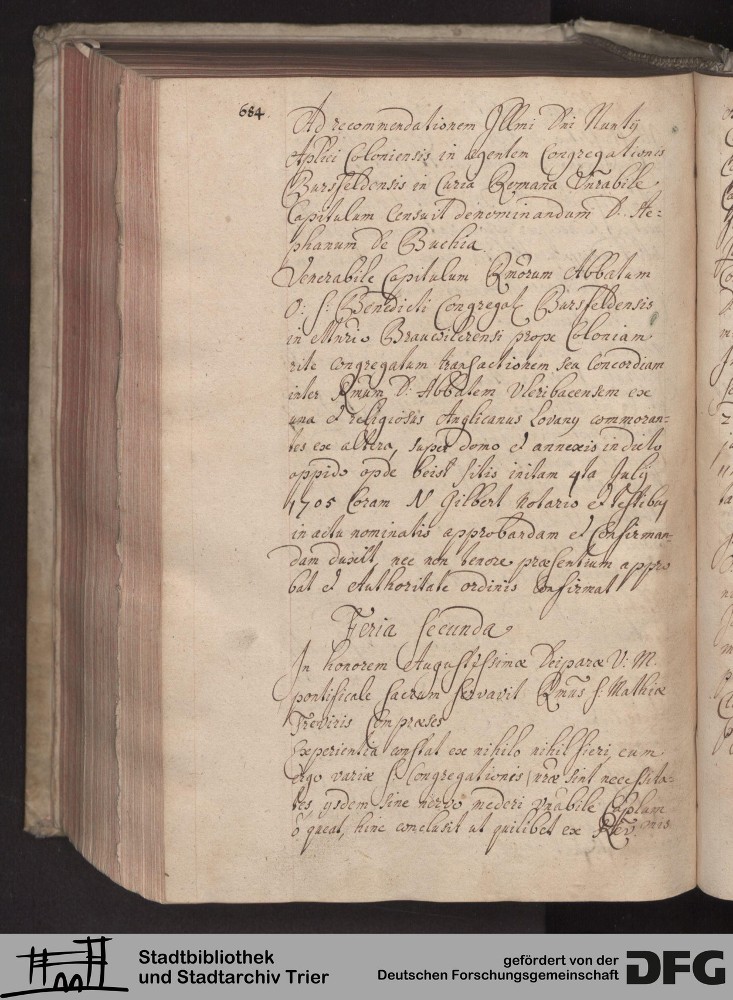 684.
Ad recommendationem Illmi Dni Nuntij
Aplici Coloniensis in agentem Congregationis
Bursfeldensis in Curia Romana Vnrabile
Capitulum Censuit denominandum D. Ste:
phanum De Buchia
Venerabile Capitulum Rmorum Abbatum
O: S: Benedicti Congregat: Bursfeldensis
in Mnrio Brauwilerensi prope Coloniam
rite congregatum transactionem seu Concordiam
inter Rmum D: Abbatem Vleribacensem ex
una et religiosas Anglicanas Lovany commoran=
tes ex altera, super domo et annexis in dicto
oppido opde beist sitis initam 4ta Julij
1705 Coram N Gilbert Notario et testibus
in actu nominatis approbandam et Confirman=
dam duxit, nec non tenore præsentium appro
bat et Authoritate ordinis Confirmat
Feria Secunda
In honorem Augustissimæ Deiparæ V: M.
pontificale Sacrum Servavit Rmus S: Mathiæ
Treviris Compræses
Experientia constat ex nihilo nihil fieri, cum
ergo variæ S. Congregationis nræ sint necessita=
tes ysdem sine nervo mederi vnabile Caplum
õ queat, hinc conclusit ut quilibet ex
Stadtbibliothek
und Stadtarchiv Trier
gefördert von der
Deutschen Forschungsgemeinschaft
DFG